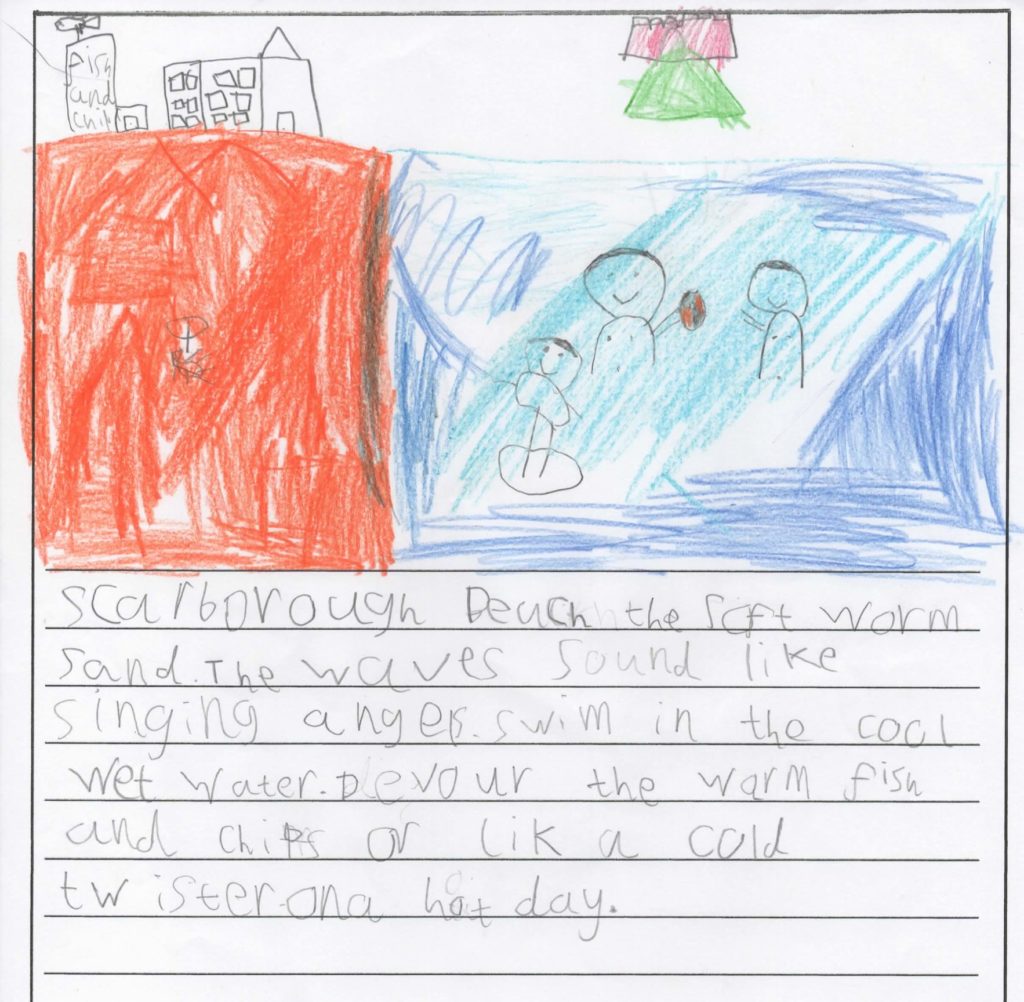 fish
and
chip
Scarborough Beach the soft worm
sand. The waves sound like
singing angels. swim in the cool
wet water. Devour the warm fish
and chips or lik a cold
twister ona hot day.